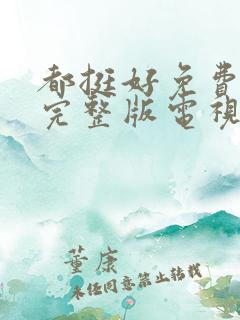 都挺好免費
完整版電視
董康
未经同意禁止转载